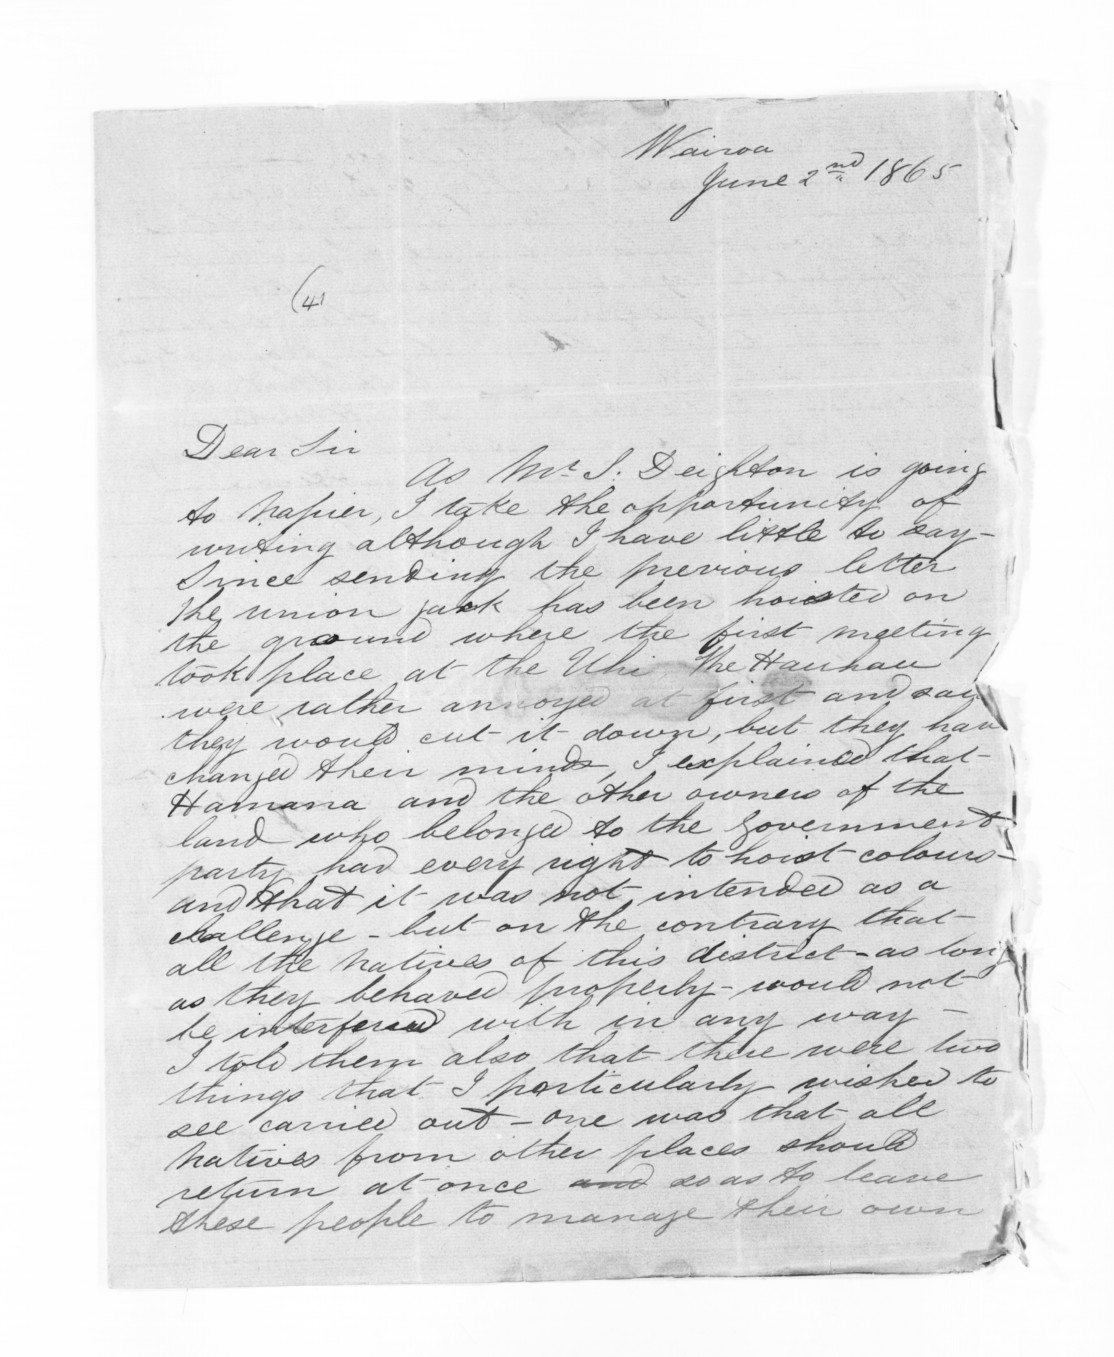 Wairoa
June 2nd 1865
(4)
Dear Sir
As Mr. S. Deighton is going
to Napier, I take the opportunity of
writing although I have little to say -
Since sending the previous letter
the union jack has been hoisted on
the ground where the first meeting
took place at the Uhi The Hauhau
were rather annoyed at first and said
they would cut it down, but they have
changed their minds, I explained that
Hamana and the other owners of the
land who belonged to the Government
party had every right to hoist colours -
and that it was not intended as a
challenge - but on the contrary that
all the natives of this district - as long
as they behaved properly - would not
be interfered with in any way -
I told them also that there were two
things that I particularly wished to
see carried out - one was that all
Natives from other places should
return at once and so as to leave
these people to manage their own